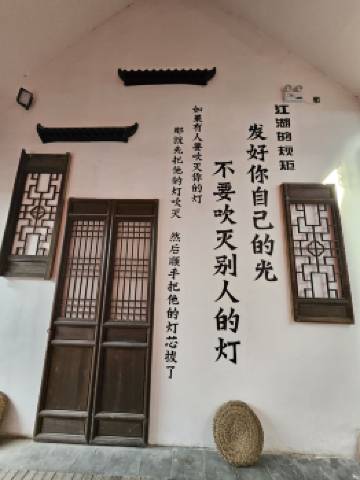 江湖的规矩
发好你自己的光
不要吹灭别人的灯
如果有人要吹灭你的灯
那就先把他的灯吹灭 然后顺手把他的灯芯拔了